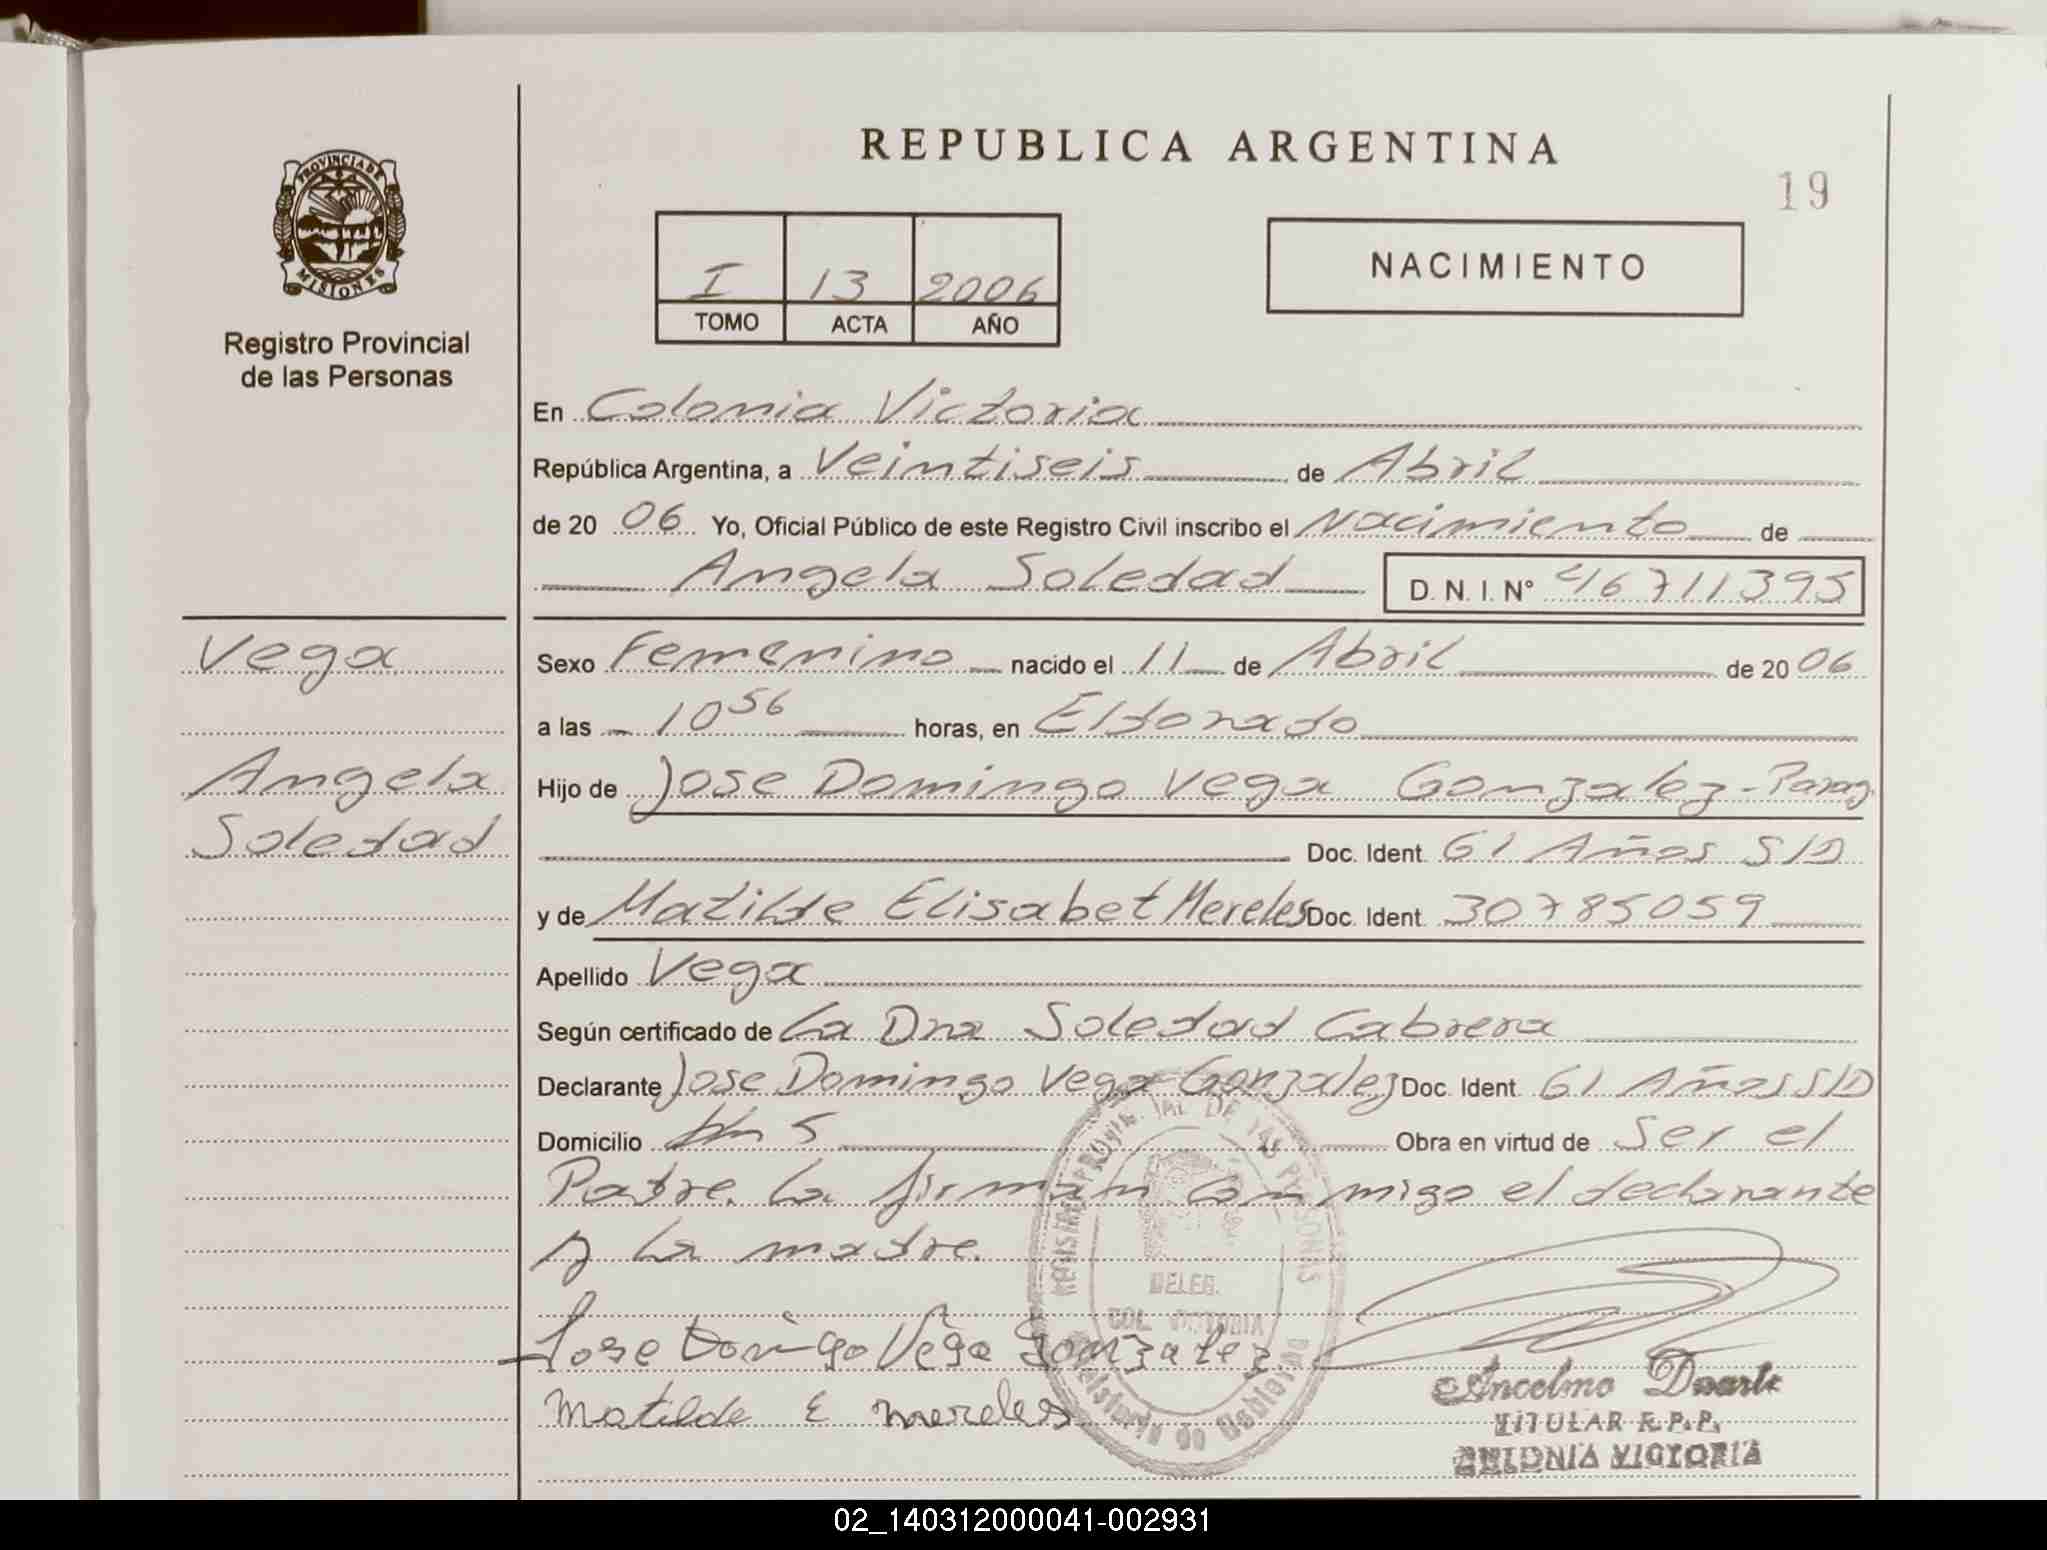 REPUBLICA ARGENTINA
19
PROVINCIA DE
MISIONES
Registro Provincial
de las Personas
I 13 2006
TOMO ACTA AÑO
NACIMIENTO
En Colonia Victoria
República Argentina, a Veintiseis de Abril
de 20 06 Yo, Oficial Público de este Registro Civil inscribo el Nacimiento de
Angela Soledad D. N. I. N° 46711395
Vega
Angela
Soledad
Sexo Femenino nacido el 11 de Abril de 20 06
a las 10 56 horas, en Eldorado
Hijo de Jose Domingo Vega Gonzalez - Parag.
Doc. Ident. 61 Años S/D
y de Matilde Elisabet Mereles Doc. Ident. 30785059
Apellido Vega
Según certificado de La Dra Soledad Cabrera
Declarante Jose Domingo Vega Gonzalez Doc. Ident. 61 Años S/D
Domicilio km 5 Obra en virtud de Ser el
Padre. La firman conmigo el declarante
y la madre.
DELEG.
COL. VICTORIA
Jose Domingo Vega Gonzalez
Matilde E mereles
Ancelmo Duarte
TITULAR R.P.P.
COLONIA VICTORIA
02_140312000041-002931